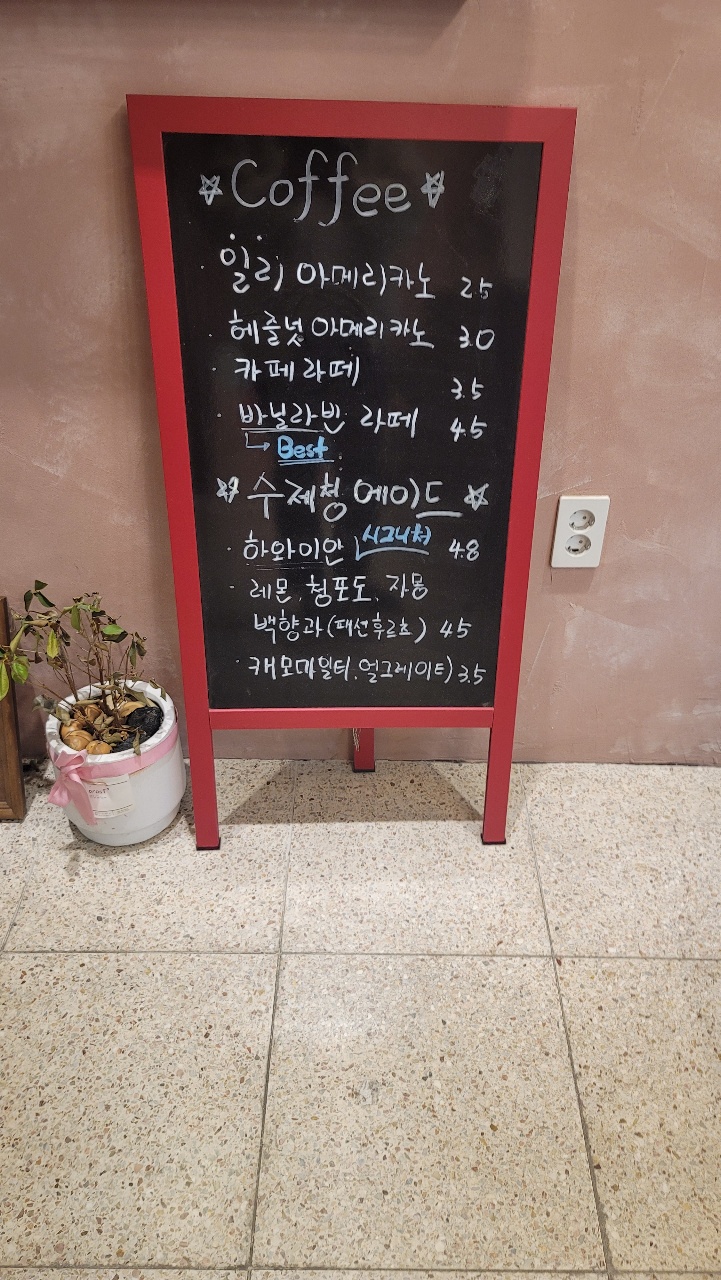 Coffee
일리 아메리카노 2.5
헤즐넛 아메리카노 3.0
카페라떼 3.5
바닐라빈 라떼 4.5
Best
수제청 에이드
하와이안 시그니처 4.8
레몬, 청포도, 자몽
백향과(패션후르츠) 4.5
캐모마일티, 얼그레이티) 3.5